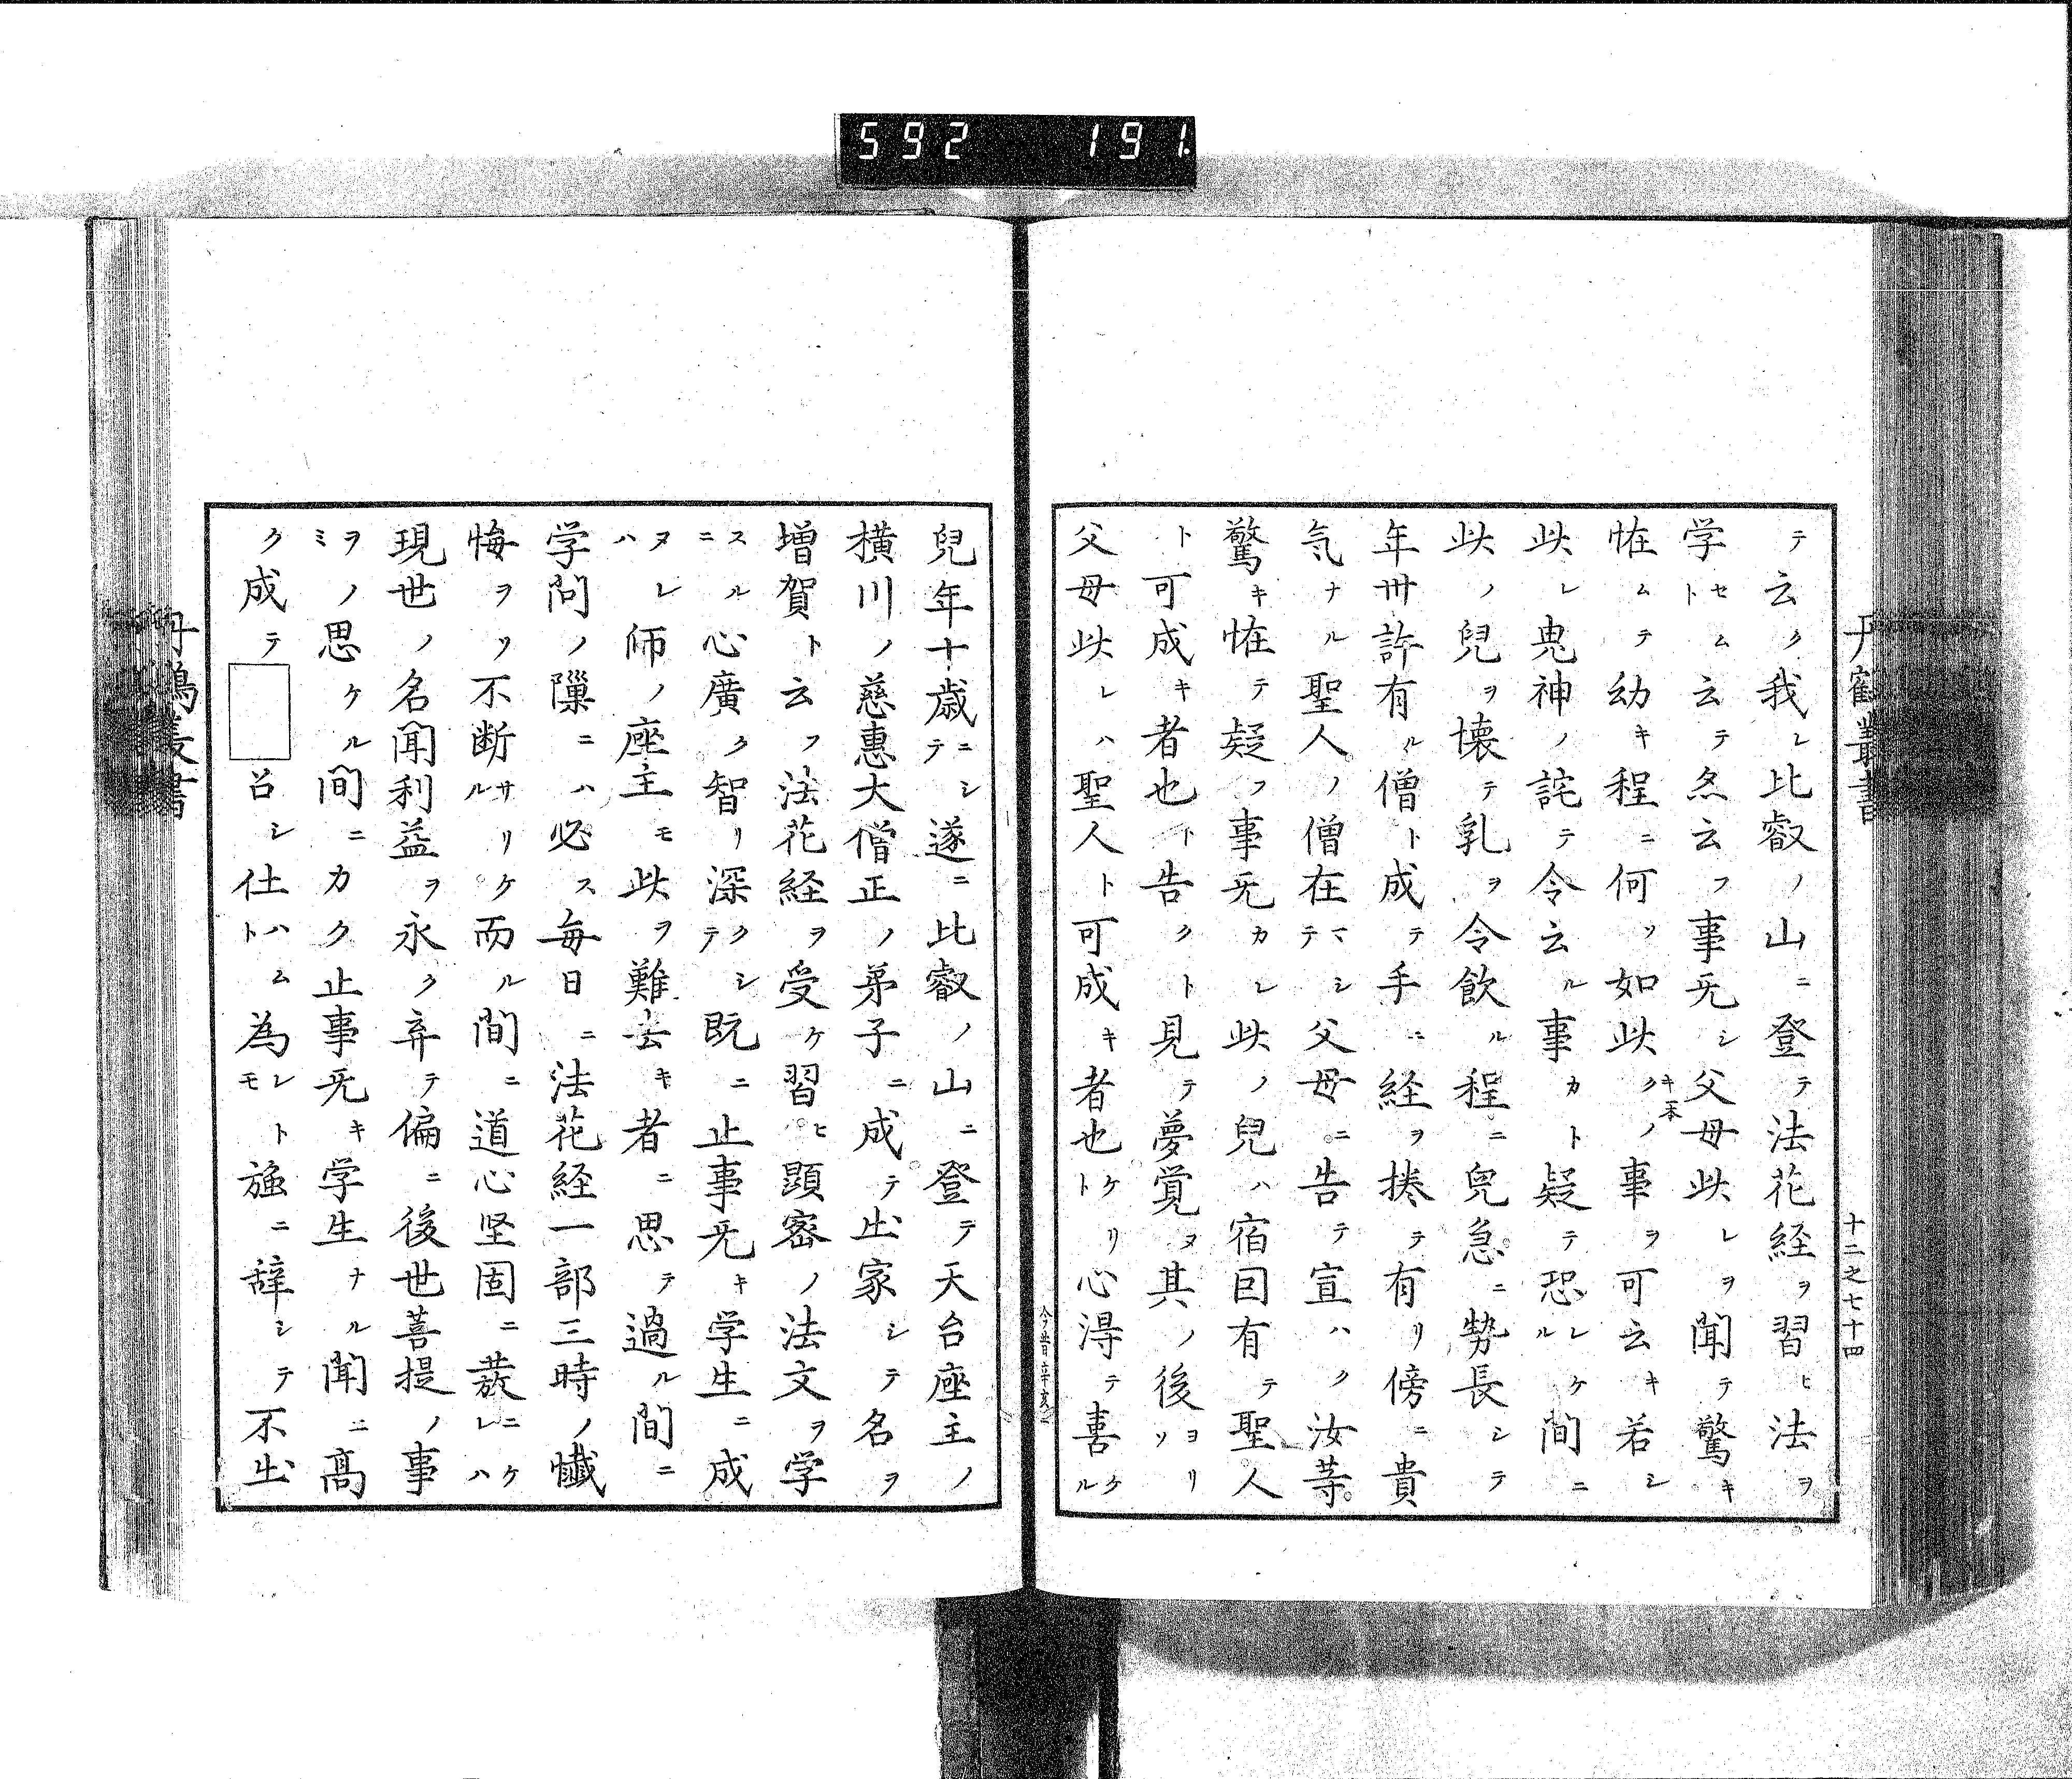 592 191
十二之七十四
テ云ク我レ比叡ノ山ニ登テ法花経ヲ習ヒ法ヲ
学セムト云テ𠅘云フ事旡シ父母此レヲ聞テ驚キ
恠ムテ幼キ程ニ何ソ如此クノ事ヲ可云キ若シ
キ一本
此レ鬼神ノ詫テ令云ル事カト疑テ恐レケル間ニ
此ノ兒ヲ懐テ乳ヲ令飲ル程ニ兒急ニ勢長シテ
年卅許有ル僧ト成テ手ニ経ヲ捲テ有リ傍ニ貴
気ナル聖人ノ僧在マシテ父母ニ告テ宣ハク汝等
驚キ恠テ疑フ事旡カレ此ノ兒ハ宿因有テ聖人
ト可成キ者也ト告クト見テ夢覚ヌ其ノ後ソヨリ
父母此レハ聖人ト可成キ者也ケリト心得テ喜ケル
兒年十歳ニシテ遂ニ比叡ノ山ニ登テ天台座主ノ
横川ノ慈惠大僧正ノ弟子ニ成テ出家シテ名ヲ
増賀ト云フ法花経ヲ受ケ習ヒ顕密ノ法文ヲ学
スルニ心廣ク智リ深クシテ既ニ止事旡キ学生ニ成
ヌレハ師ノ座主モ此ヲ難去キ者ニ思テ過ル間ニ
学問ノ隟ニハ必ス毎日ニ法花経一部三時ノ懺
悔ヲソ不断サリケル而ル間ニ道心堅固ニ蕟ニケレハ
現世ノ名聞利益ヲ永ク弃テ偏ニ後世菩提ノ事
ヲノミ思ケル間ニカク止事旡キ学生ナル聞ニ高
ク成テ□召シ仕ハムト為レトモ強ニ辞シテ不出
丹鶴叢書